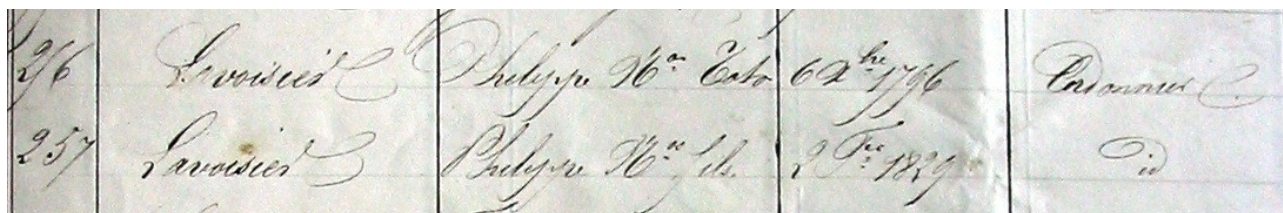 256 Lavoisier Philippe N.as Toto 6 X.bre 1796 Cordonnier
257 Lavoisier Philippe N.as fils 2 F.er 1829 id